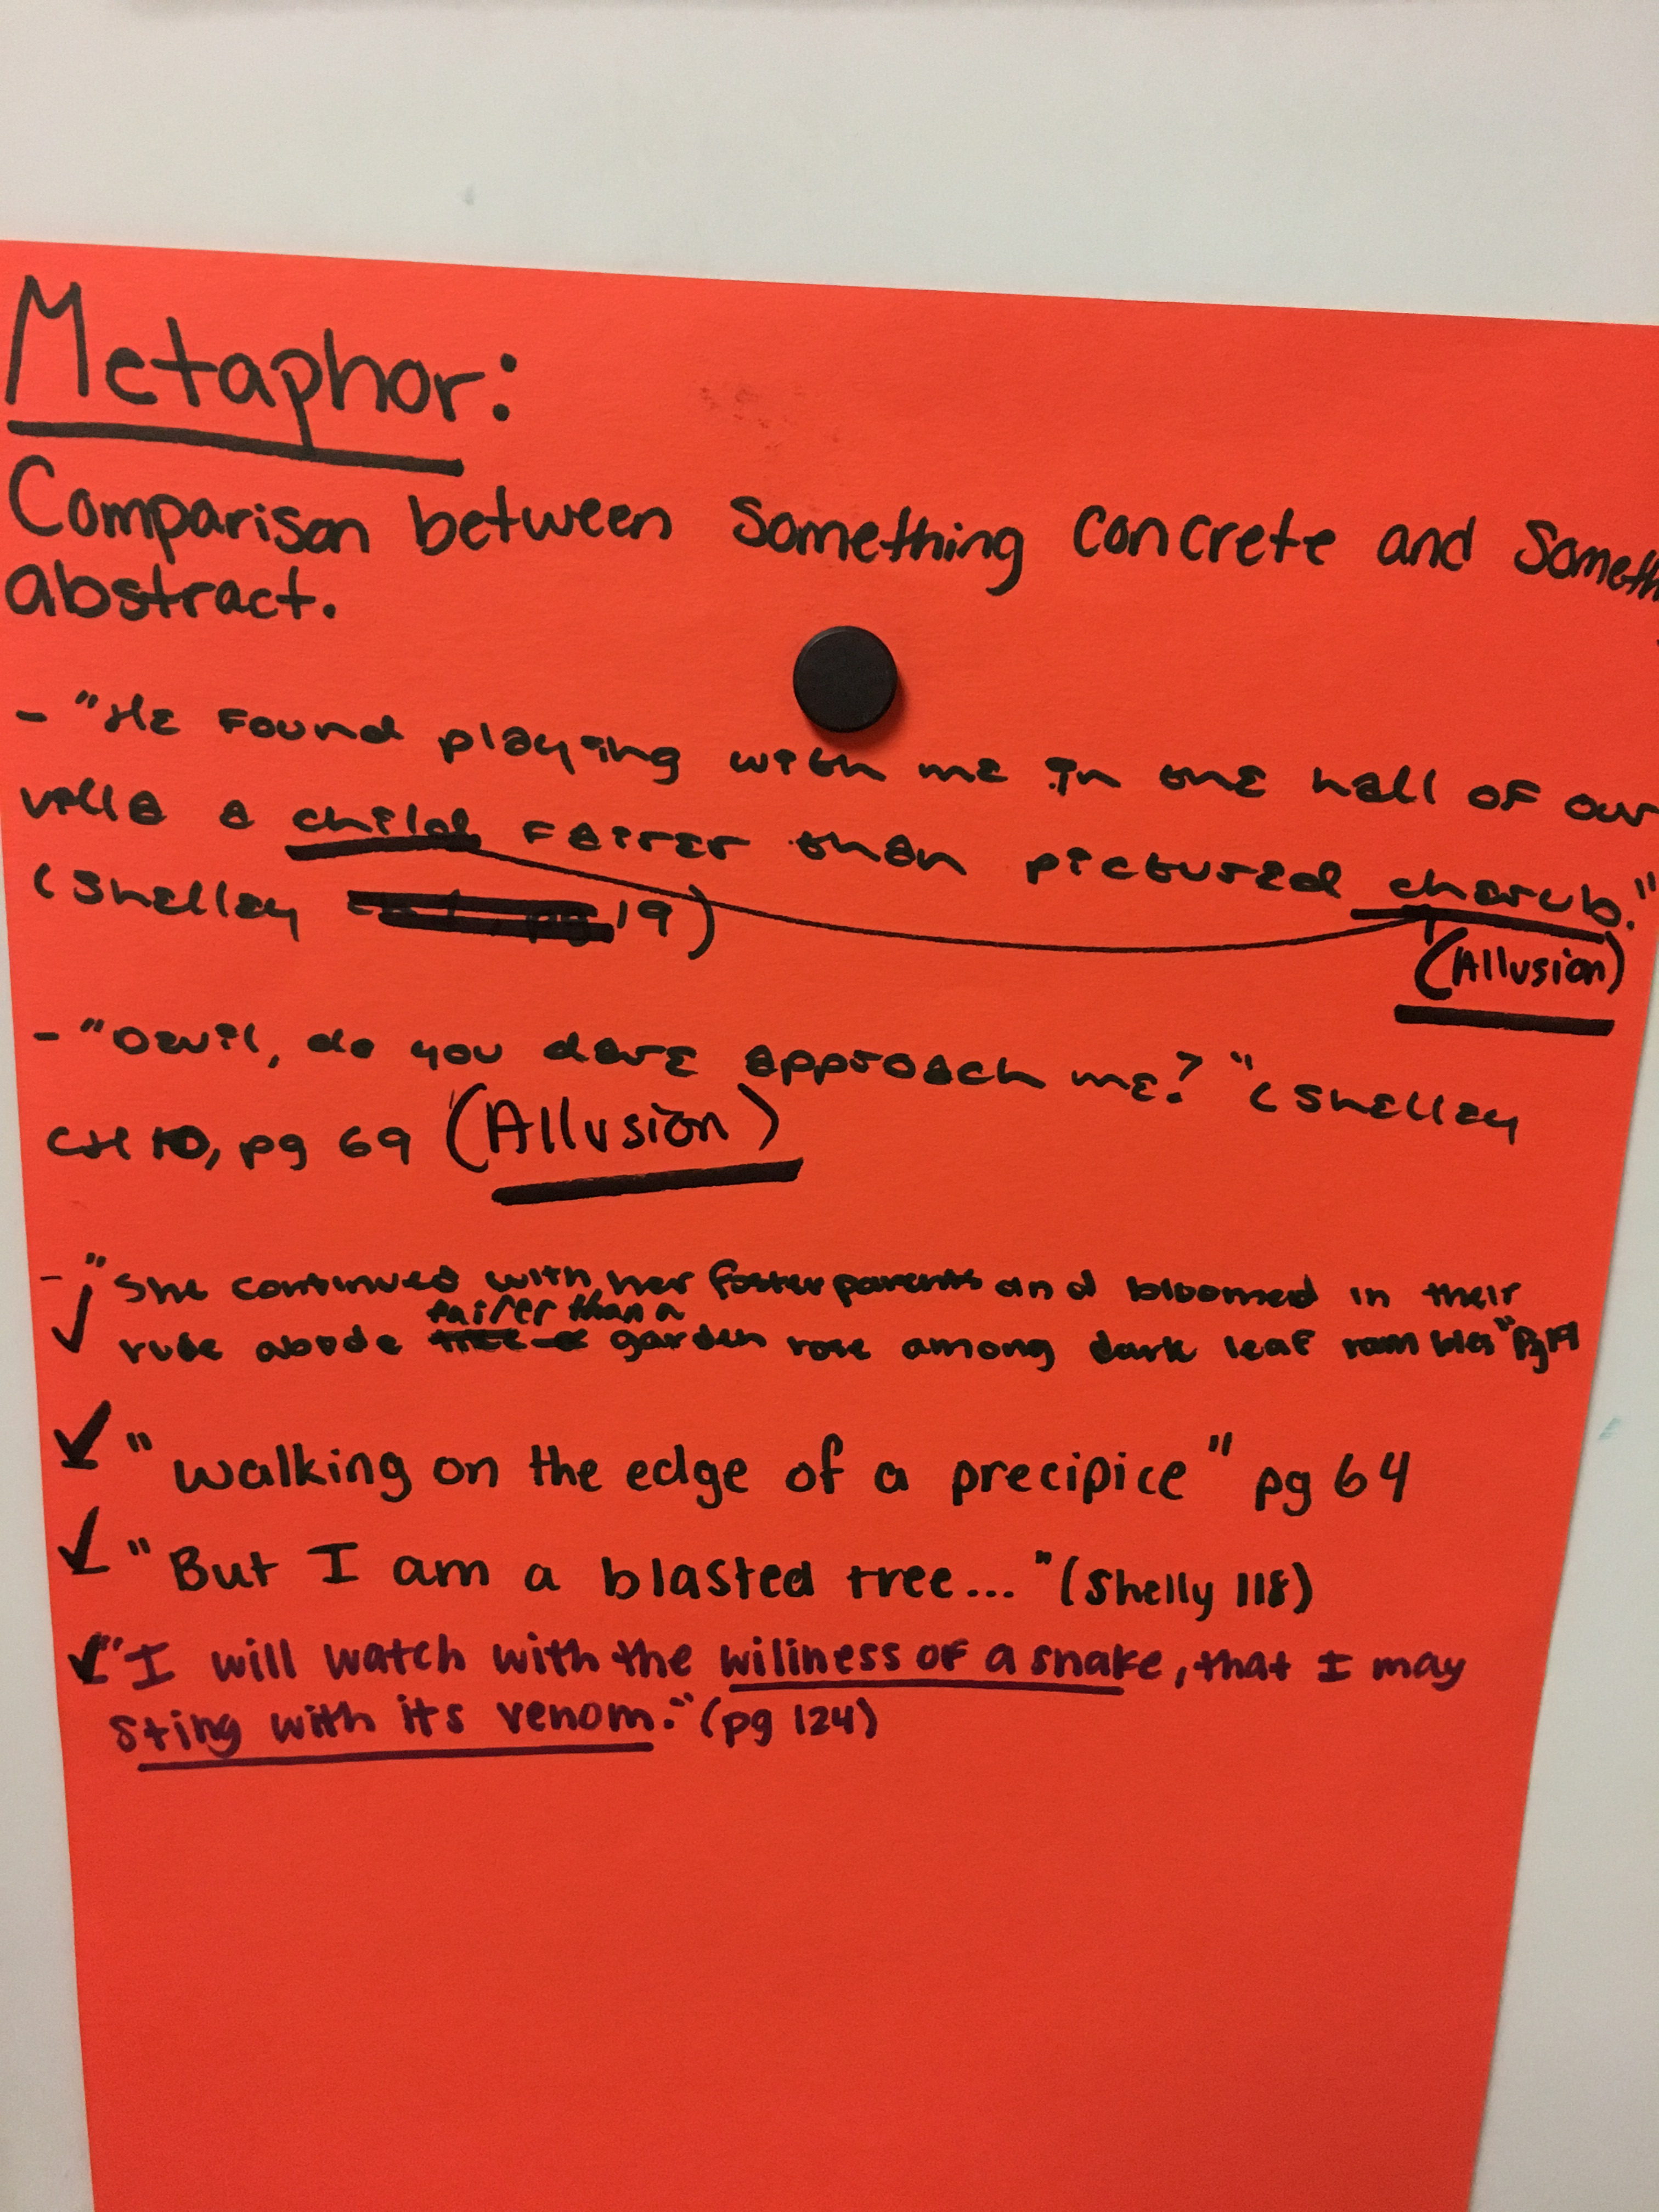 Metaphor:
Comparison between Something concrete and Someth
abstract.
- "He found playing with me in the hall of our
villa a child fairer than pictured cherub."
(Shelley 19)
(Allusion)
- "Devil, do you dare approach me?" (Shelley
CH 10, pg 69 (Allusion)
- "She continued with her foster parents and bloomed in their
fairer than a
rude abode garden rose among dark leaf rambles" Pg 19
"walking on the edge of a precipice" pg 64
"But I am a blasted tree..." (Shelly 118)
"I will watch with the wiliness of a snake, that I may
sting with its venom." (pg 124)